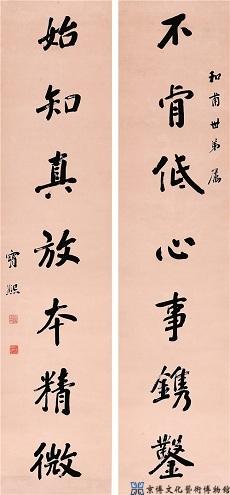 和甫世弟属
不肯低心事鐫鑿
始知真放本精微
寶熙
京博文化藝術博物館